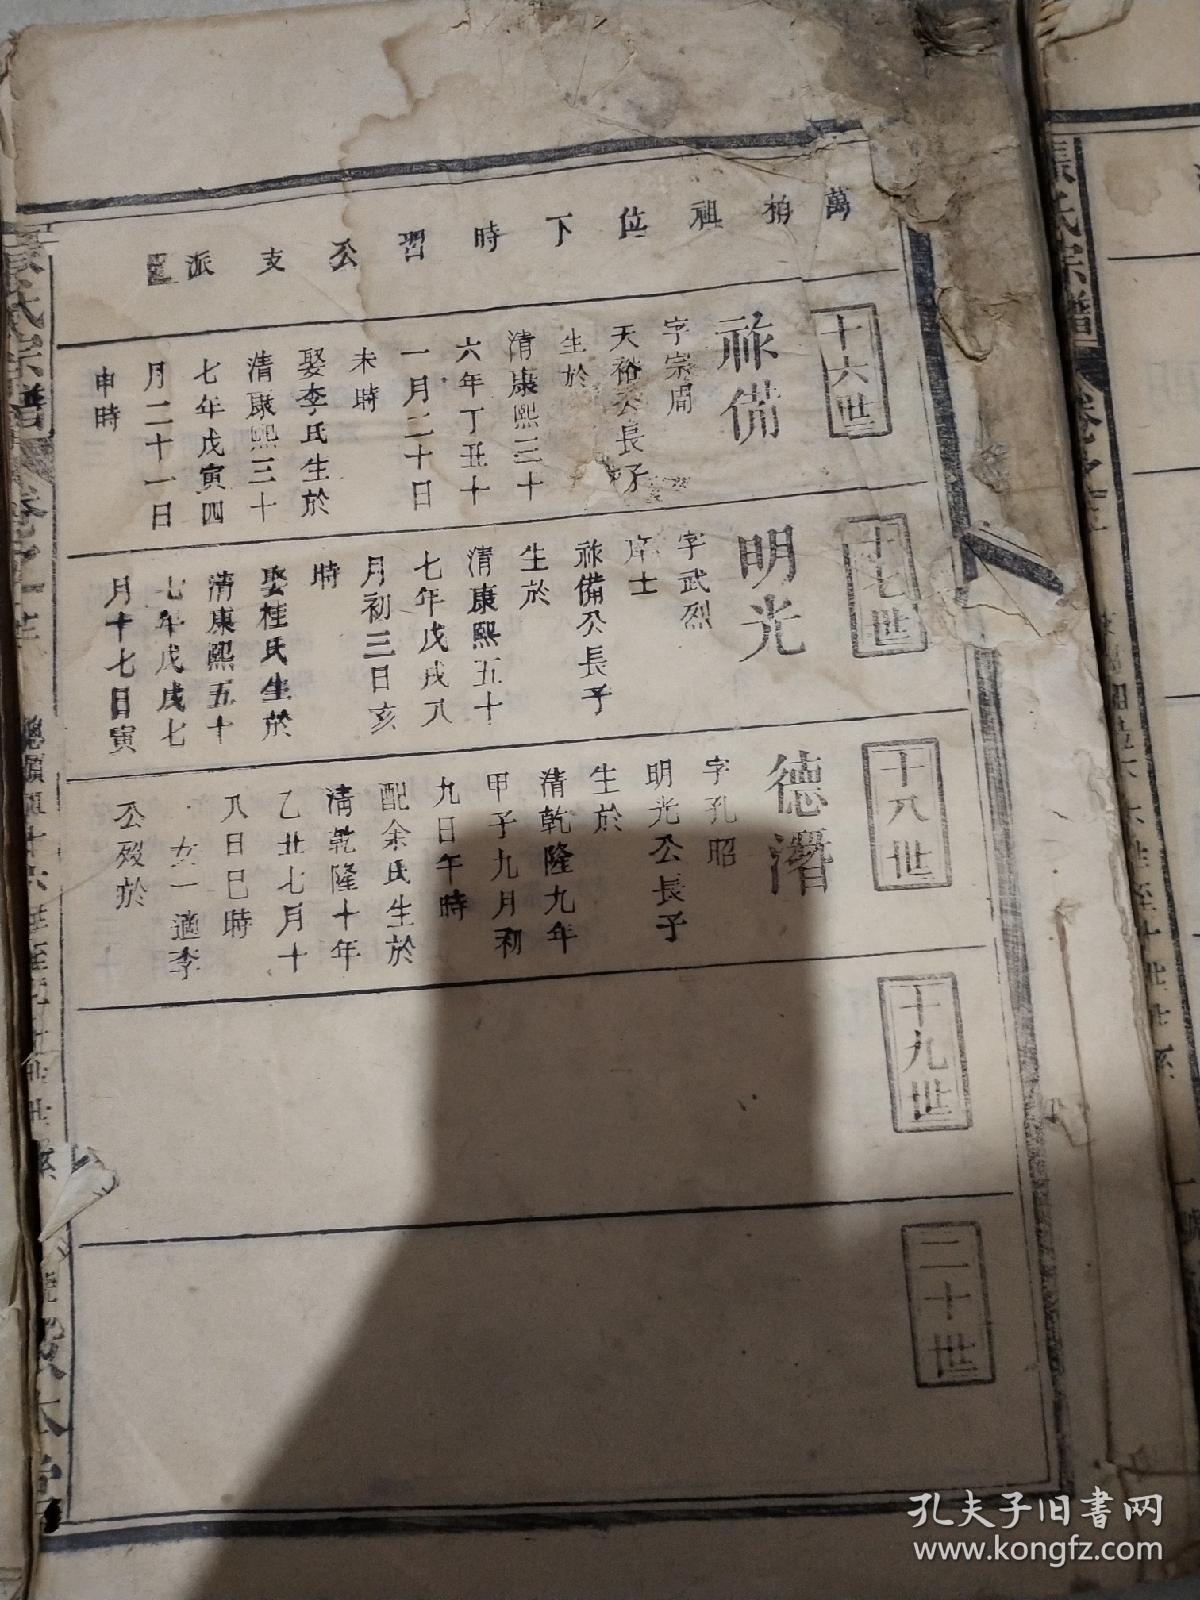 萬柏祖位下時習公支派
十六世
祿備
字宗周
天裕公長子
生於
清康熙三十
六年丁丑十
一月二十日
未時
娶李氏生於
清康熙三十
七年戊寅四
月二十一日
申時
十七世
明光
字武烈
庠士
祿備公長子
生於
清康熙五十
七年戊戌八
月初三日亥
時
娶桂氏生於
清康熙五十
七年戊戌七
月十七日寅
十八世
德潛
字孔昭
明光公長子
生於
清乾隆九年
甲子九月初
九日午時
配余氏生於
清乾隆十年
乙丑七月十
八日巳時
女一適李
公歿於
十九世
二十世
張氏宗譜
卷之
張氏宗譜
孔夫子旧书网
www.kongfz.com